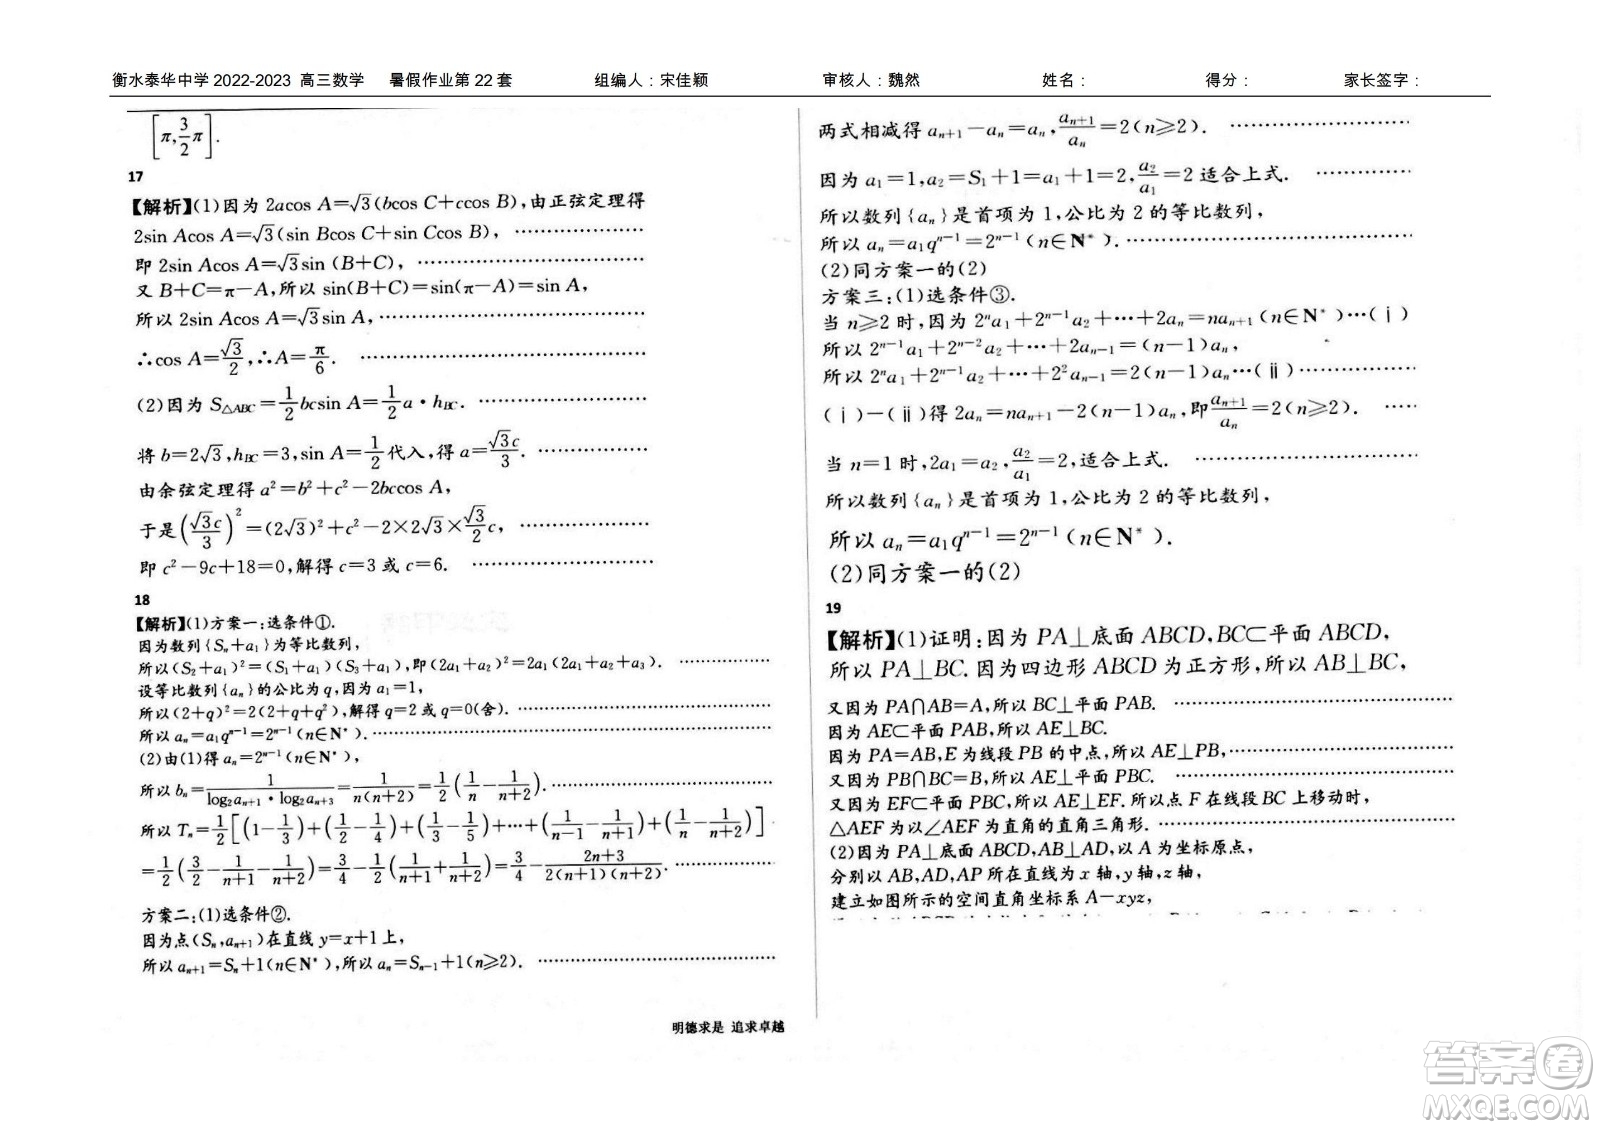 衡水泰华中学2022-2023 高三数学 暑假作业第22套 组编人：宋佳颖 审核人：魏然 姓名： 得分： 家长签字：
[π,3/2π].
17
【解析】(1)因为 2acos A=√3(bcos C+ccos B),由正弦定理得
2sin Acos A=√3(sin Bcos C+sin Ccos B),
即 2sin Acos A=√3sin (B+C),
又 B+C=π-A,所以 sin(B+C)=sin(π-A)=sin A,
所以 2sin Acos A=√3sin A,
∴cos A=√3/2,∴A=π/6.
(2)因为 S△ABC=1/2bcsin A=1/2a·hBC.
将 b=2√3,hBC=3,sin A=1/2代入,得 a=√3c/3.
由余弦定理得 a²=b²+c²-2bccos A,
于是(√3c/3)²=(2√3)²+c²-2×2√3×√3/2c,
即 c²-9c+18=0,解得 c=3 或 c=6.
18
【解析】(1)方案一:选条件①.
因为数列{Sₙ+a₁}为等比数列,
所以(S₂+a₁)²=(S₁+a₁)(S₃+a₁),即(2a₁+a₂)²=2a₁(2a₁+a₂+a₃).
设等比数列{aₙ}的公比为 q,因为 a₁=1,
所以(2+q)²=2(2+q+q²),解得 q=2 或 q=0(舍).
所以 aₙ=a₁qⁿ⁻¹=2ⁿ⁻¹(n∈N*).
(2)由(1)得 aₙ=2ⁿ⁻¹(n∈N*),
所以 bₙ=1/(log₂aₙ₊₁·log₂aₙ₊₃)=1/(n(n+2))=1/2(1/n-1/(n+2)).
所以 Tₙ=1/2[(1-1/3)+(1/2-1/4)+(1/3-1/5)+…+(1/(n-1)-1/(n+1))+(1/n-1/(n+2))]
=1/2(3/2-1/(n+1)-1/(n+2))=3/4-1/2(1/(n+1)+1/(n+2))=3/4-(2n+3)/(2(n+1)(n+2)).
方案二:(1)选条件②.
因为点(Sₙ,aₙ₊₁)在直线 y=x+1 上,
所以 aₙ₊₁=Sₙ+1(n∈N*),所以 aₙ=Sₙ₋₁+1(n⩾2).
两式相减得 aₙ₊₁-aₙ=aₙ,aₙ₊₁/aₙ=2(n⩾2).
因为 a₁=1,a₂=S₁+1=a₁+1=2,a₂/a₁=2 适合上式.
所以数列{aₙ}是首项为 1,公比为 2 的等比数列,
所以 aₙ=a₁qⁿ⁻¹=2ⁿ⁻¹(n∈N*).
(2)同方案一的(2)
方案三:(1)选条件③.
当 n⩾2 时,因为 2ⁿa₁+2ⁿ⁻¹a₂+…+2aₙ=naₙ₊₁(n∈N*)…(ⅰ)
所以 2ⁿ⁻¹a₁+2ⁿ⁻²a₂+…+2aₙ₋₁=(n-1)aₙ,
所以 2ⁿa₁+2ⁿ⁻¹a₂+…+2²aₙ₋₁=2(n-1)aₙ…(ⅱ)
(ⅰ)-(ⅱ)得 2aₙ=naₙ₊₁-2(n-1)aₙ,即aₙ₊₁/aₙ=2(n⩾2).
当 n=1 时,2a₁=a₂,a₂/a₁=2,适合上式.
所以数列{aₙ}是首项为 1,公比为 2 的等比数列,
所以 aₙ=a₁qⁿ⁻¹=2ⁿ⁻¹(n∈N*).
(2)同方案一的(2)
19
【解析】(1)证明:因为 PA⊥底面 ABCD,BC⊂平面 ABCD,
所以 PA⊥BC.因为四边形 ABCD 为正方形,所以 AB⊥BC,
又因为 PA∩AB=A,所以 BC⊥平面 PAB.
因为 AE⊂平面 PAB,所以 AE⊥BC.
因为 PA=AB,E 为线段 PB 的中点,所以 AE⊥PB,
又因为 PB∩BC=B,所以 AE⊥平面 PBC.
又因为 EF⊂平面 PBC,所以 AE⊥EF.所以点 F 在线段 BC 上移动时,
△AEF 为以∠AEF 为直角的直角三角形.
(2)因为 PA⊥底面 ABCD,AB⊥AD,以 A 为坐标原点,
分别以 AB,AD,AP 所在直线为 x 轴,y 轴,z 轴,
建立如图所示的空间直角坐标系 A-xyz,
明德求是 追求卓越
答案圈
MXQE.COM